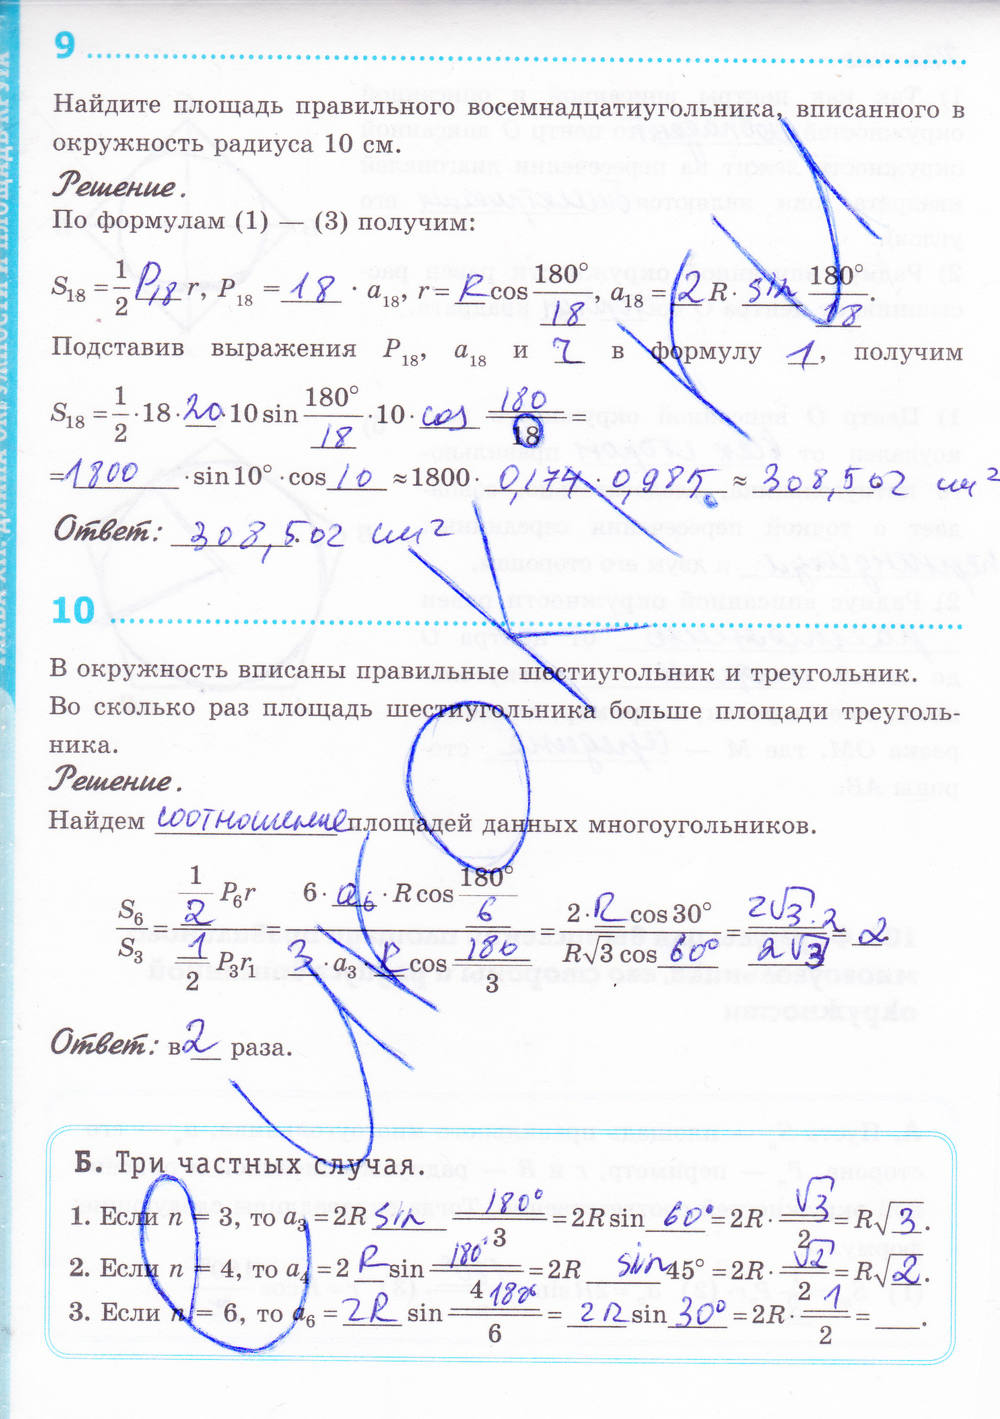 9
Найдите площадь правильного восемнадцатиугольника, вписанного в
окружность радиуса 10 см.
Решение.
По формулам (1) — (3) получим:
S₁₈ = 1/2 P₁₈ r, P₁₈ = 18 · a₁₈, r = R cos 180°/18, a₁₈ = 2 R · sin 180°/18.
Подставив выражения P₁₈, a₁₈ и r в формулу 1, получим
S₁₈ = 1/2 · 18 · 20 · 10 sin 180°/18 · 10 · cos 180/18 =
= 1800 · sin 10° · cos 10 ≈ 1800 · 0,174 · 0,985 ≈ 308,502 см²
Ответ: 308,502 см²
10
В окружность вписаны правильные шестиугольник и треугольник.
Во сколько раз площадь шестиугольника больше площади треуголь-
ника.
Решение.
Найдем соотношение площадей данных многоугольников.
S₆/S₃ = (1/2 P₆r)/(1/2 P₃r₁) = (6 · a₆ · R cos 180°/6)/(3 · a₃ · R cos 180/3) = (2 · R cos 30°)/(R√3 cos 60°) = (2√3 · 2)/(2√3) = 2
Ответ: в 2 раза.
Б. Три частных случая.
1. Если n = 3, то a₃ = 2R sin 180°/3 = 2R sin 60° = 2R · √3/2 = R√3.
2. Если n = 4, то a₄ = 2 R sin 180°/4 = 2R sin 45° = 2R · √2/2 = R√2.
3. Если n = 6, то a₆ = 2R sin 180°/6 = 2R sin 30° = 2R · 1/2 = ___.